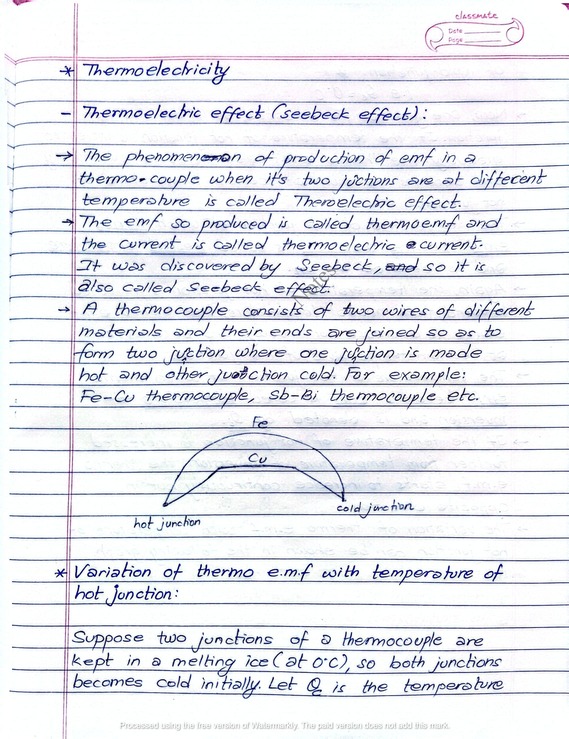 classmate
Date
Page
* Thermoelectricity
- Thermoelectric effect (seebeck effect):
→ The phenomenon of production of emf in a
thermo-couple when it's two juctions are at different
temperature is called Theroelectric effect.
→ The emf so produced is called thermoemf and
the current is called thermoelectric current.
It was discovered by Seebeck, and so it is
also called seebeck effect.
→ A thermocouple consists of two wires of different
materials and their ends are joined so as to
form two juction where one juction is made
hot and other juction cold. For example:
Fe-Cu thermocouple, Sb-Bi thermocouple etc.
Fe
Cu
hot junction
cold junction
* Variation of thermo e.m.f with temperature of
hot junction:
Suppose two junctions of a thermocouple are
kept in a melting ice (at 0°C), so both junctions
becomes cold initially. Let θc is the temperature
Processed using the free version of Watermarkly. The paid version does not add this mark.